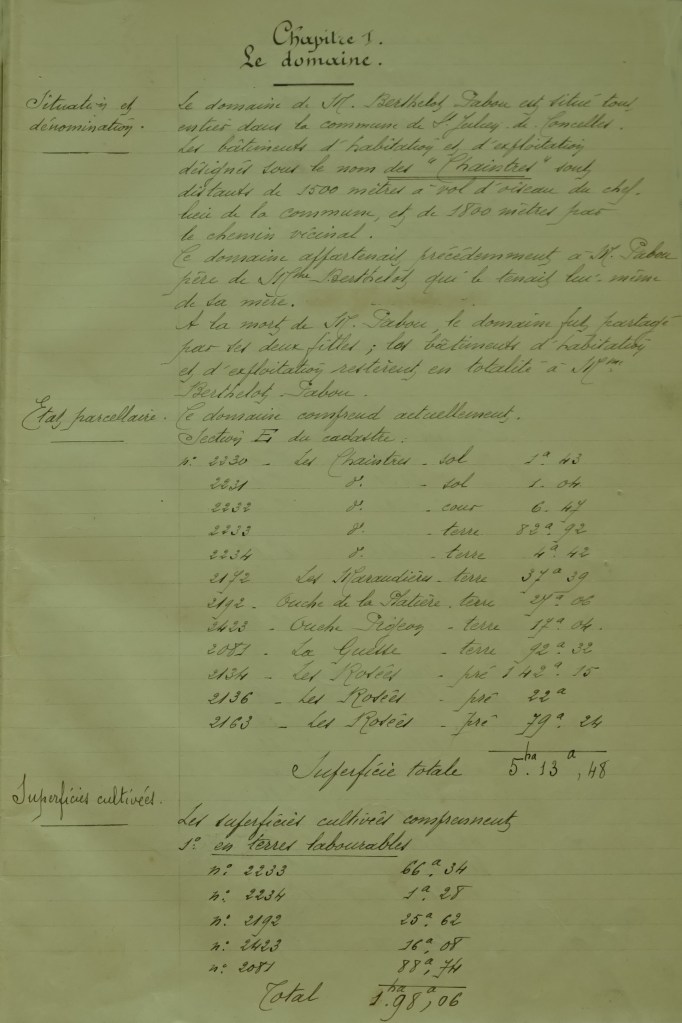 Chapitre I.
Le domaine.
Situation et
dénomination.
Le domaine de M. Berthelot Pabou est situé tout
entier dans la commune de St Julien de Concelles.
Les bâtiments d'habitation et d'exploitation
désignés sous le nom des "Chaintres" sont
distants de 1500 mètres à vol d'oiseau du chef-
lieu de la commune, et de 1800 mètres par
le chemin vicinal.
Ce domaine appartenait précédemment à M. Pabou
père de Mme Berthelot, qui le tenait lui-même
de sa mère.
A la mort de M. Pabou, le domaine fut partagé
par ses deux filles ; les bâtiments d'habitation
et d'exploitation restèrent en totalité à Mme
Berthelot-Pabou.
Etat parcellaire.
Ce domaine comprend actuellement.
Section E du cadastre :
n° 2230 - Les Chaintres - sol 1a 43
2231 d° - sol 1. 04
2232 d° - cour 6. 47
2233 d° - terre 82a 92
2234 d° - terre 4a 42
2172 Les Maraudières - terre 37a 39
2192 - Ouche de la Platière - terre 27a 06
2423 - Ouche Pigeon - terre 17a 04.
2081 - La Guesse - terre 92a 32
2134 - Les Rosées - pré 142a 15
2136 - Les Rosées - pré 22a
2163 - Les Rosées - pré 79a 24
Superficie totale 5ha.13a,48
Superficies cultivées.
Les superficies cultivées comprennent
1° en terres labourables
n° 2233 66a 34
n° 2234 1a 28
n° 2192 25a 62
n° 2423 16a 08
n° 2081 88a 74
Total 1ha.98a,06